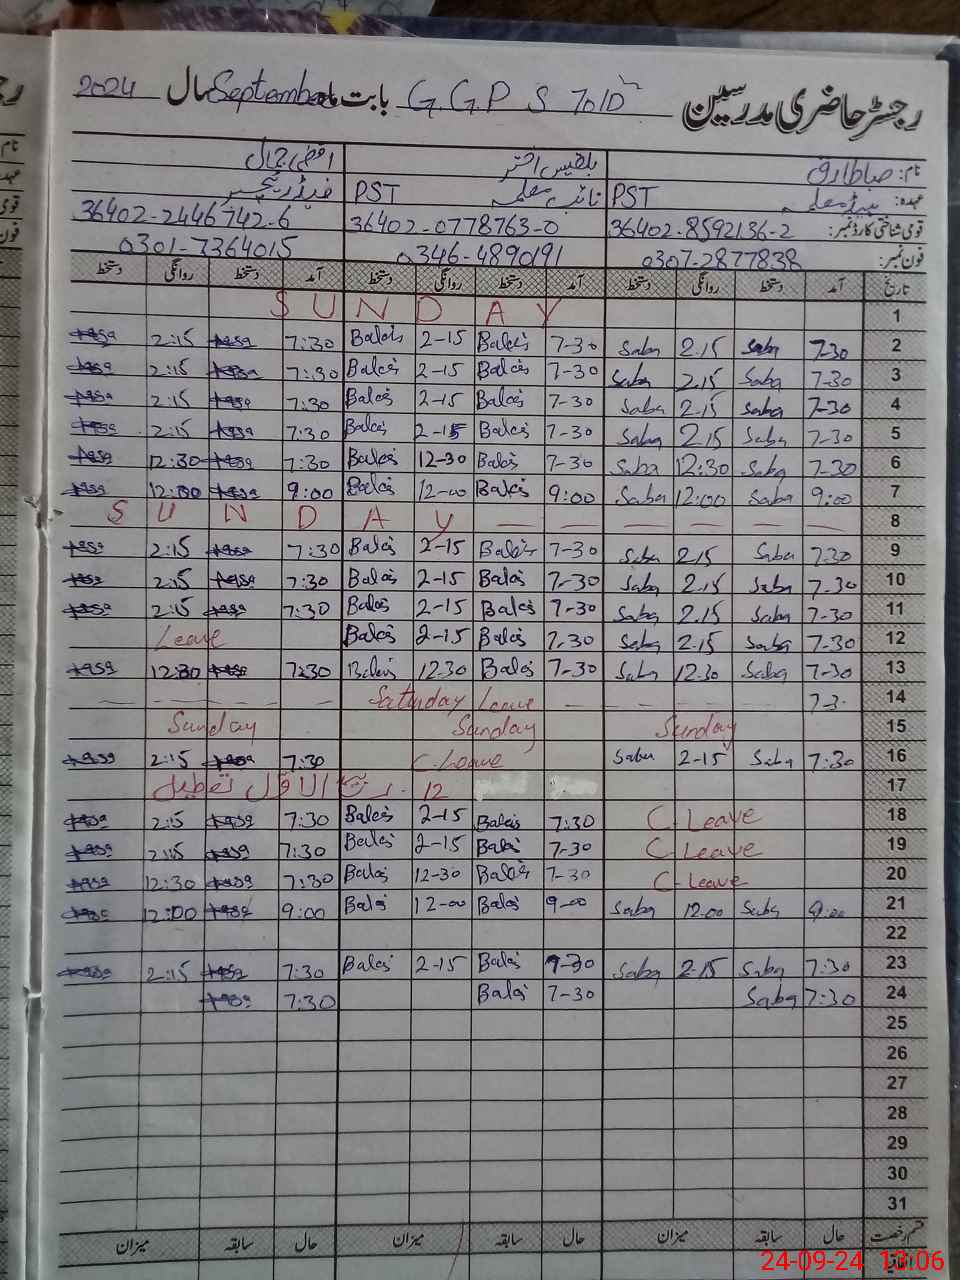 رجسٹر حاضری مدرسین G.G.P.S 70/D بابت ماہ September سال 2024
نام: صبا طارق بلقیس اختر
عہدہ: ہیڈ معلمہ PST نائب معلمہ PST فیڈر ٹیچر
قومی شناختی کارڈ نمبر: 36402-8592136-2 36402-0778763-0 36402-2446742-6
فون نمبر: 0307-2877838 0346-4890191 0301-7364015
تاریخ آمد دستخط روانگی دستخط آمد دستخط روانگی دستخط آمد دستخط روانگی دستخط
1 SUNDAY
2 7-30 Saba 2.15 Saba 7-30 Balqis 2-15 Balqis 7:30 2:15
3 7-30 Saba 2.15 Saba 7-30 Balqis 2-15 Balqis 7:30 2:15
4 7-30 Saba 2.15 Saba 7-30 Balqis 2-15 Balqis 7:30 2:15
5 7-30 Saba 2.15 Saba 7-30 Balqis 2-15 Balqis 7:30 2:15
6 7-30 Saba 12:30 Saba 7-30 Balqis 12-30 Balqis 7:30 12:30
7 9:00 Saba 12:00 Saba 9:00 Balqis 12-00 Balqis 9:00 12:00
8 SUNDAY
9 7:30 Saba 2.15 Saba 7-30 Balqis 2-15 Balqis 7:30 2:15
10 7-30 Saba 2.15 Saba 7-30 Balqis 2-15 Balqis 7:30 2:15
11 7-30 Saba 2.15 Saba 7-30 Balqis 2-15 Balqis 7:30 2:15
12 7-30 Saba 2.15 Saba 7.30 Balqis 2-15 Balqis Leave
13 7-30 Saba 12.30 Saba 7-30 Balqis 12.30 Balqis 7:30 12:30
14 7-3 Saturday Leave
15 Sunday Sunday Sunday
16 7:30 Saba 2-15 Saba C-Leave 7:30 2:15
17 12 ربیع الاول تعطیل
18 C-Leave 7:30 Balqis 2-15 Balqis 7:30 2:15
19 C-Leave 7-30 Balqis 2-15 Balqis 7:30 2:15
20 C-Leave 7-30 Balqis 12-30 Balqis 7:30 12:30
21 9:00 Saba 12.00 Saba 9-00 Balqis 12-00 Balqis 9:00 12:00
22
23 7:30 Saba 2-15 Saba 7-30 Balqis 2-15 Balqis 7:30 2:15
24 7:30 Saba 7-30 Balqis 7:30
25
26
27
28
29
30
31
قسم رخصت حال سابقہ میزان حال سابقہ میزان حال سابقہ میزان
اتفاقیہ
24-09-24 13:06